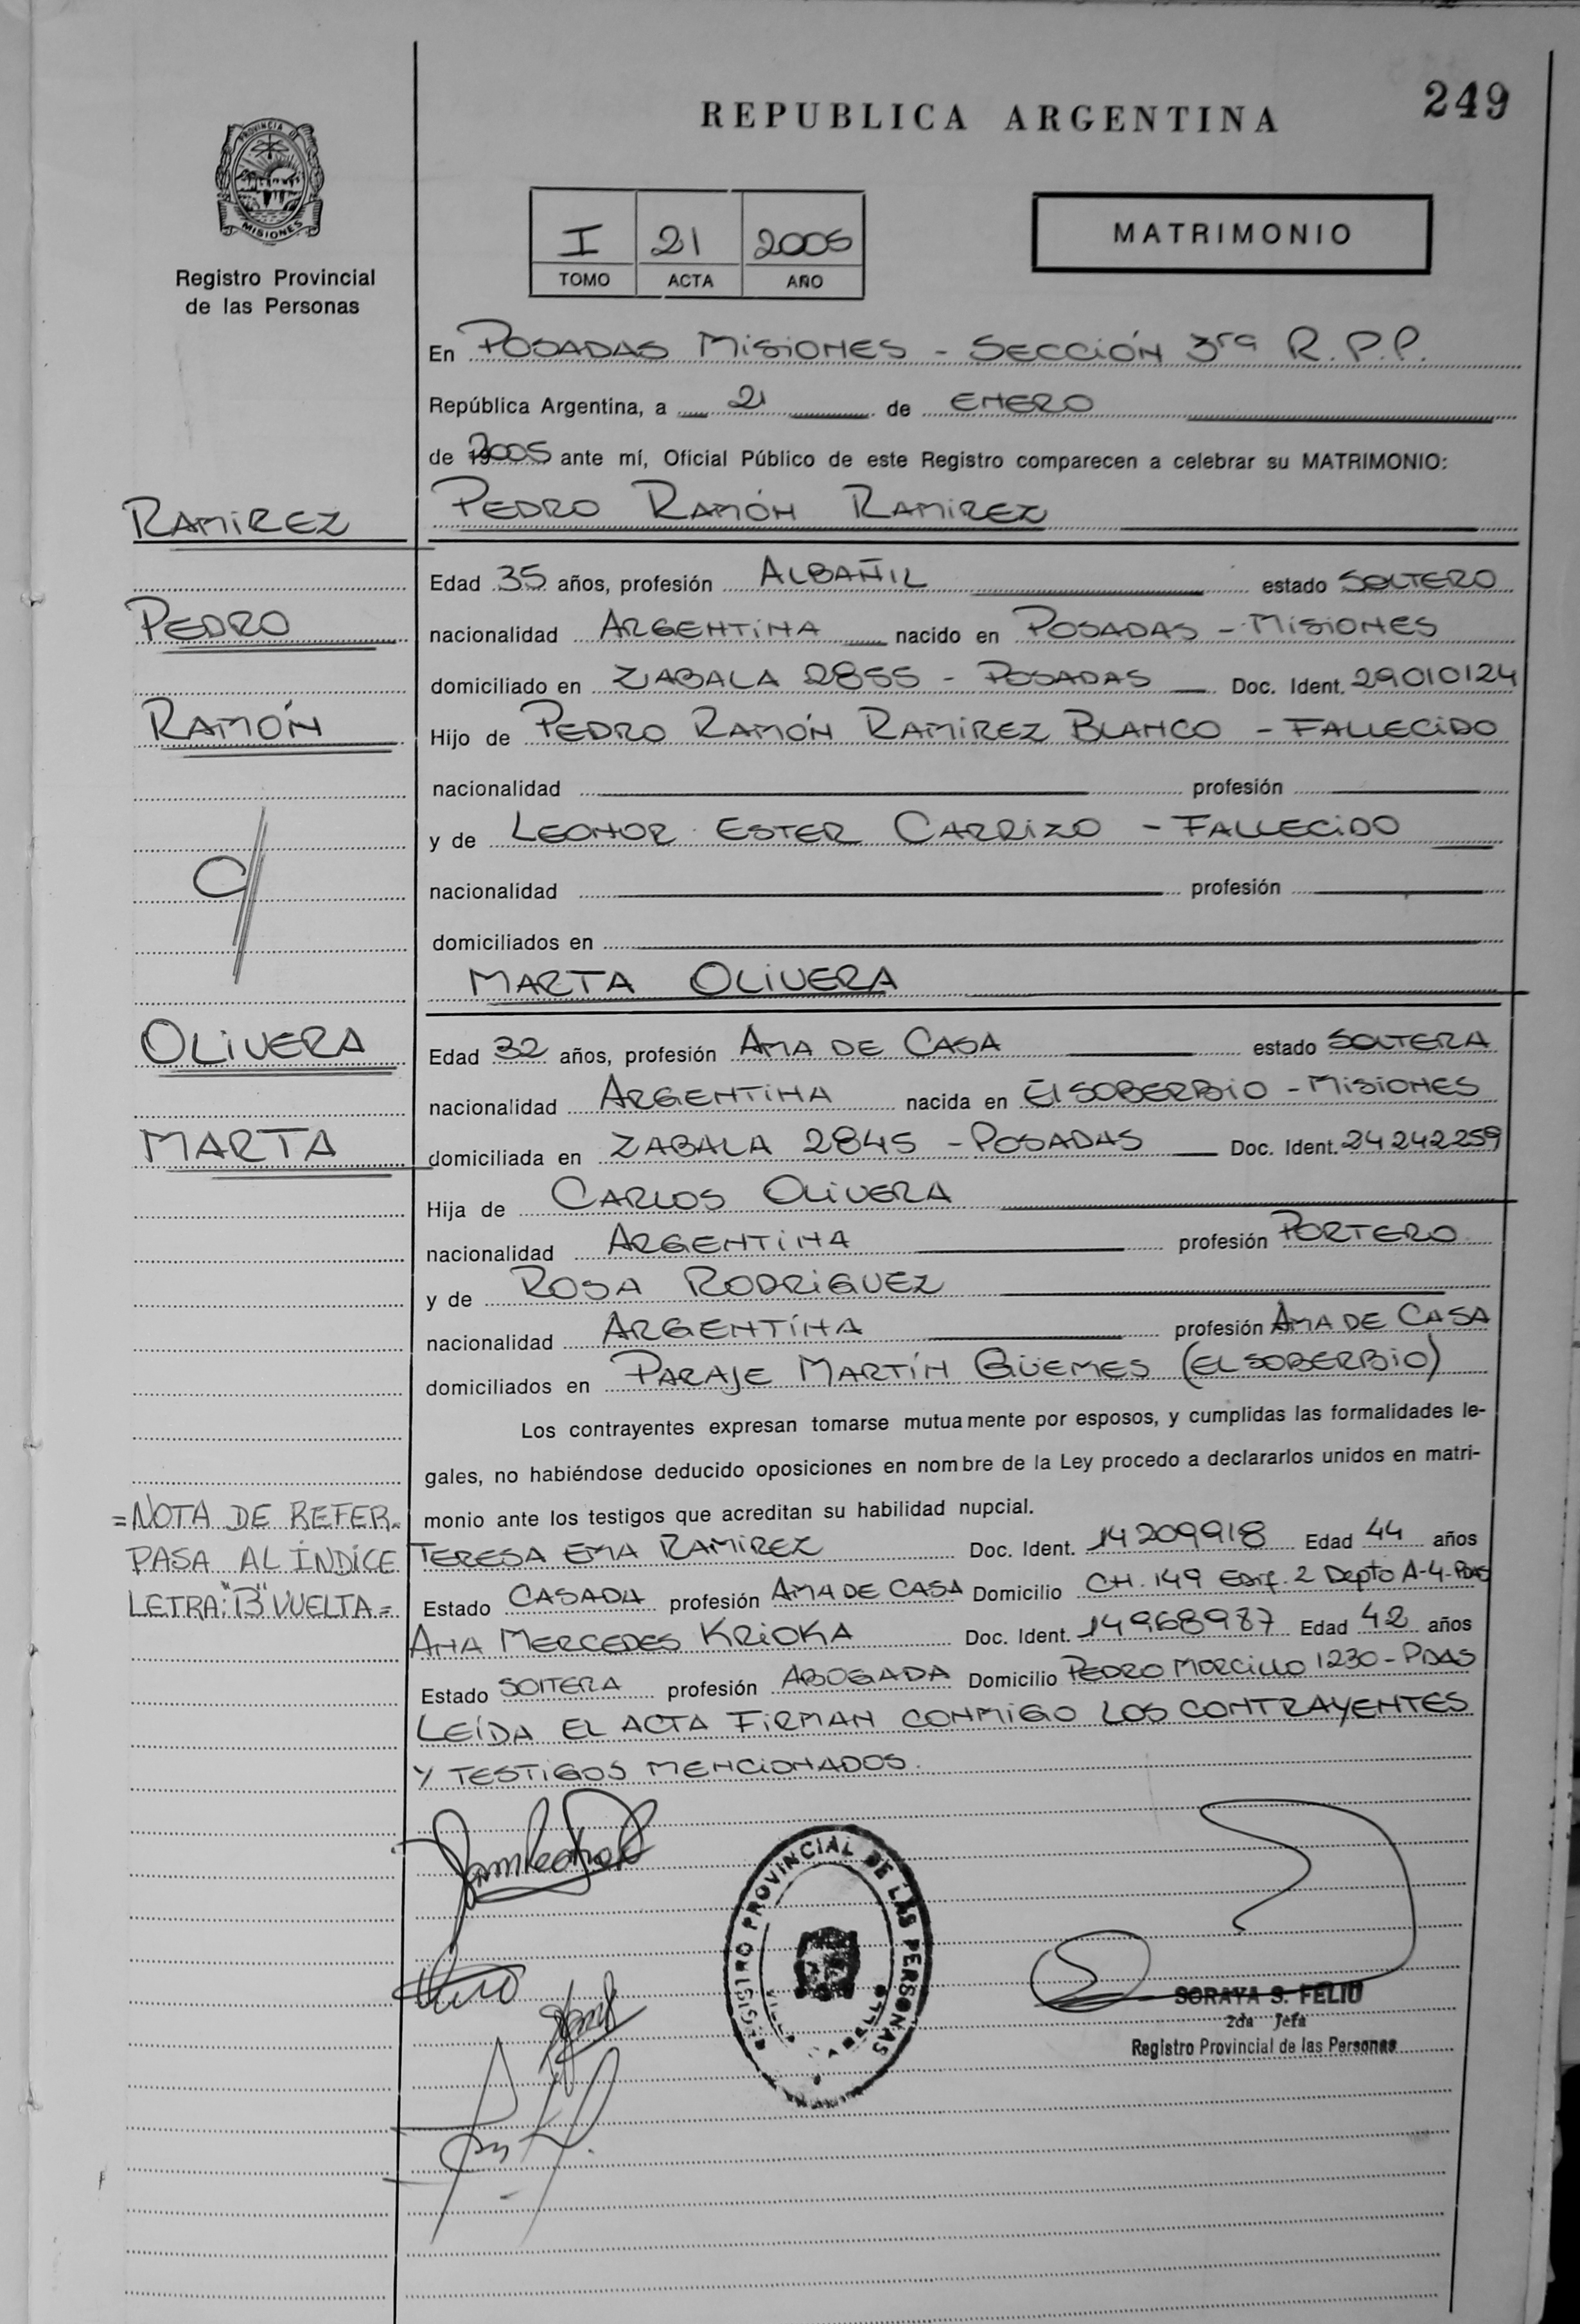 249
REPUBLICA ARGENTINA
PROVINCIA DE
MISIONES
Registro Provincial
de las Personas
I 21 2005
TOMO ACTA AÑO
MATRIMONIO
En POSADAS MISIONES - SECCIÓN 3ra R.P.P.
República Argentina, a 21 de ENERO
de 2005 ante mí, Oficial Público de este Registro comparecen a celebrar su MATRIMONIO:
RAMIREZ PEDRO RAMÓN RAMIREZ
Edad 35 años, profesión ALBAÑIL estado SOLTERO
PEDRO nacionalidad ARGENTINA nacido en POSADAS - MISIONES
domiciliado en ZABALA 2855 - POSADAS Doc. Ident. 29010124
RAMÓN Hijo de PEDRO RAMÓN RAMIREZ BLANCO - FALLECIDO
nacionalidad profesión
y de LEONOR ESTER CARRIZO - FALLECIDO
C/ nacionalidad profesión
domiciliados en
MARTA OLIVERA
OLIVERA Edad 32 años, profesión AMA DE CASA estado SOLTERA
nacionalidad ARGENTINA nacida en El SOBERBIO - MISIONES
MARTA domiciliada en ZABALA 2845 - POSADAS Doc. Ident. 24242259
Hija de CARLOS OLIVERA
nacionalidad ARGENTINA profesión PORTERO
y de ROSA RODRIGUEZ
nacionalidad ARGENTÍNA profesión AMA DE CASA
domiciliados en PARAJE MARTÍN GÜEMES (EL SOBERBIO)
Los contrayentes expresan tomarse mutuamente por esposos, y cumplidas las formalidades le-
gales, no habiéndose deducido oposiciones en nombre de la Ley procedo a declararlos unidos en matri-
monio ante los testigos que acreditan su habilidad nupcial.
=NOTA DE REFER.
PASA AL ÍNDICE
LETRA: "13" VUELTA=
TERESA EMA RAMIREZ Doc. Ident. 14209918 Edad 44 años
Estado CASADA profesión AMA DE CASA Domicilio CH. 149 Edif. 2 Depto A-4-PDAS
ANA MERCEDES KRIOKA Doc. Ident. 14968987 Edad 42 años
Estado SOLTERA profesión ABOGADA Domicilio PEDRO MORCILLO 1230 - PDAS
LEÍDA EL ACTA FIRMAN CONMIGO LOS CONTRAYENTES
Y TESTIGOS MENCIONADOS.
REGISTRO PROVINCIAL DE LAS PERSONAS
SORAYA S. FELIU
2da Jefa
Registro Provincial de las Personas